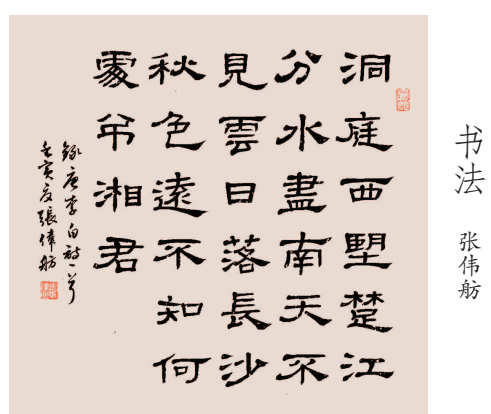 书法
张伟舫
洞庭西朢楚江
分水盡南天不
見雲日落長沙
秋色遠不知何
處弔湘君
録唐李白詩一首
壬寅夏張偉舫